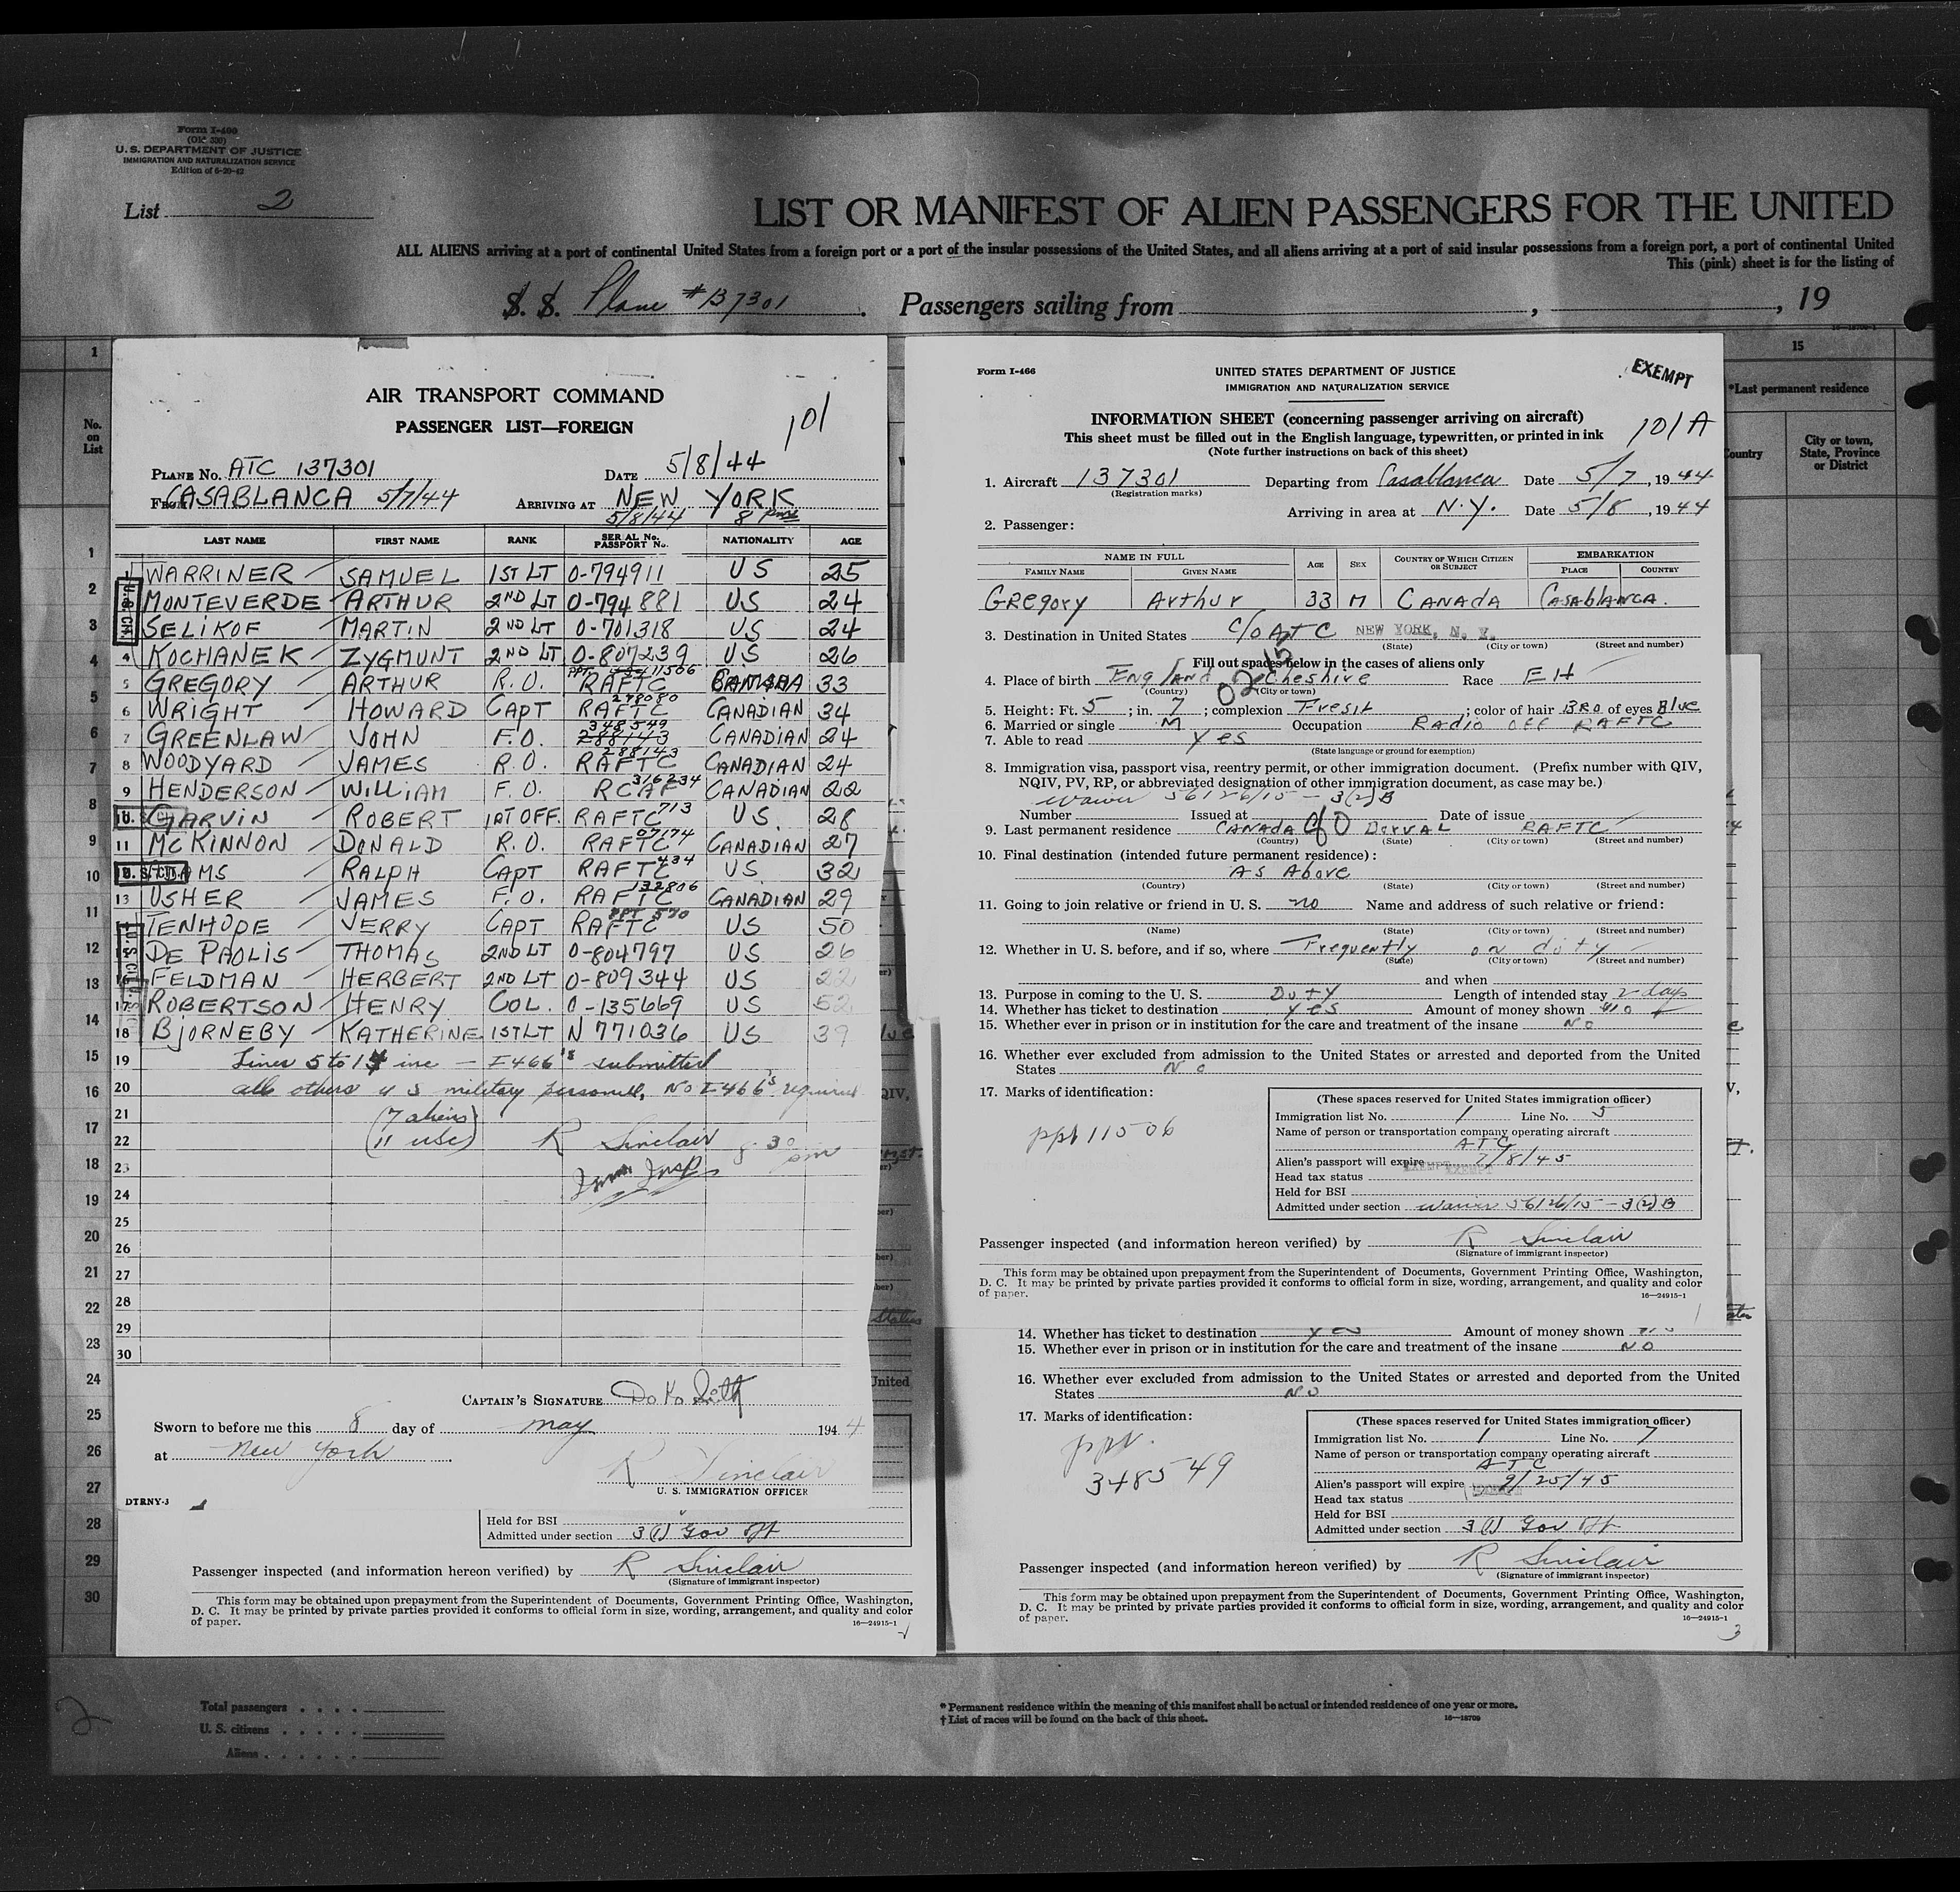 Form I-400
U. S. DEPARTMENT OF JUSTICE
IMMIGRATION AND NATURALIZATION SERVICE
Edition of 6-20-42
List 2
LIST OR MANIFEST OF ALIEN PASSENGERS FOR THE UNITED
ALL ALIENS arriving at a port of continental United States from a foreign port or a port of the insular possessions of the United States, and all aliens arriving at a port of said insular possessions from a foreign port, a port of continental United
This (pink) sheet is for the listing of
S. S. Plane #137301. Passengers sailing from , , 19
AIR TRANSPORT COMMAND
PASSENGER LIST—FOREIGN
101
PLANE NO. ATC 137301 DATE 5/8/44
FROM CASABLANCA 5/7/44 ARRIVING AT NEW YORK
5/8/44 8 pm
LAST NAME FIRST NAME RANK SERIAL No. PASSPORT No. NATIONALITY AGE
1 WARRINER SAMUEL 1ST LT O-794911 US 25
MONTEVERDE ARTHUR 2ND LT O-794881 US 24
SELIKOF MARTIN 2ND LT O-701318 US 24
4 KOCHANEK ZYGMUNT 2ND LT O-807239 US 26
5 GREGORY ARTHUR R.O. PPT 11506 RAFTC 33
6 WRIGHT HOWARD CAPT 278080 RAFTC CANADIAN 34
7 GREENLAW JOHN F.O. 348549 288143 CANADIAN 24
8 WOODYARD JAMES R.O. 288143 RAFTC CANADIAN 24
9 HENDERSON WILLIAM F.O. 316234 RCAF CANADIAN 22
10 GARVIN ROBERT 1ST OFF. RAFTC 713 US 28
11 MCKINNON DONALD R.O. 07174 RAFTC CANADIAN 27
U.S. CIT. RALPH CAPT 434 RAFTC US 32
13 USHER JAMES F.O. 132806 RAFTC CANADIAN 29
TENHOPE JERRY CAPT PPT 570 RAFTC US 50
DE PAOLIS THOMAS 2ND LT O-804797 US 26
FELDMAN HERBERT 2ND LT O-809344 US 22
17 ROBERTSON HENRY COL. O-135669 US 52
18 BJORNEBY KATHERINE 1ST LT N 771036 US 39
19 Lines 5 to 14 inc — I466's submitted
20 all others U S military personnel, No I-466's required
21 (7 aliens)
22 (11 USC) R Sinclair 8:30 pm
23 Imm Insp
24
25
26
27
28
29
30
CAPTAIN'S SIGNATURE
Sworn to before me this 8 day of May 1944
at New York
R Sinclair
U. S. IMMIGRATION OFFICER
DTRNY-3
Held for BSI
Admitted under section 3(1) Gov Off
Passenger inspected (and information hereon verified) by R Sinclair
(Signature of immigrant inspector)
This form may be obtained upon prepayment from the Superintendent of Documents, Government Printing Office, Washington,
D. C. It may be printed by private parties provided it conforms to official form in size, wording, arrangement, and quality and color
of paper. 16—24915-1
Total passengers
U. S. citizens
Aliens
2
Form I-466
UNITED STATES DEPARTMENT OF JUSTICE
IMMIGRATION AND NATURALIZATION SERVICE
EXEMPT
INFORMATION SHEET (concerning passenger arriving on aircraft)
This sheet must be filled out in the English language, typewritten, or printed in ink
101 A
(Note further instructions on back of this sheet)
1. Aircraft 137301 Departing from Casablanca Date 5/7, 1944
(Registration marks)
Arriving in area at N.Y. Date 5/8, 1944
2. Passenger:
NAME IN FULL AGE SEX COUNTRY OF WHICH CITIZEN OR SUBJECT EMBARKATION
FAMILY NAME GIVEN NAME PLACE COUNTRY
Gregory Arthur 33 M CANADA CASABLANCA.
3. Destination in United States C/O ATC NEW YORK, N. Y.
(State) (City or town) (Street and number)
Fill out spaces below in the cases of aliens only
4. Place of birth England Cheshire Race EH
(Country) (City or town)
5. Height: Ft. 5; in. 7; complexion Fresh; color of hair BRO of eyes Blue
6. Married or single M Occupation Radio Off RAFTC
7. Able to read yes
(State language or ground for exemption)
8. Immigration visa, passport visa, reentry permit, or other immigration document. (Prefix number with QIV,
NQIV, PV, RP, or abbreviated designation of other immigration document, as case may be.)
waiver 56126/15 - 3(2)B
Number Issued at Date of issue
9. Last permanent residence CANADA DORVAL RAFTC
(Country) (State) (City or town) (Street and number)
10. Final destination (intended future permanent residence):
As Above
(Country) (State) (City or town) (Street and number)
11. Going to join relative or friend in U. S. no Name and address of such relative or friend:
(Name) (State) (City or town) (Street and number)
12. Whether in U. S. before, and if so, where Frequently on duty
(State) (City or town) (Street and number)
and when
13. Purpose in coming to the U. S. Duty Length of intended stay 2 days
14. Whether has ticket to destination yes Amount of money shown $10
15. Whether ever in prison or in institution for the care and treatment of the insane No
16. Whether ever excluded from admission to the United States or arrested and deported from the United
States No
17. Marks of identification:
ppt 11506
(These spaces reserved for United States immigration officer)
Immigration list No. 1 Line No. 5
Name of person or transportation company operating aircraft
ATC
Alien's passport will expire 7/8/45
Head tax status EXEMPT
Held for BSI
Admitted under section waiver 56126/15 - 3(2)B
Passenger inspected (and information hereon verified) by R Sinclair
(Signature of immigrant inspector)
This form may be obtained upon prepayment from the Superintendent of Documents, Government Printing Office, Washington,
D. C. It may be printed by private parties provided it conforms to official form in size, wording, arrangement, and quality and color
of paper. 16—24915-1
14. Whether has ticket to destination yes Amount of money shown
15. Whether ever in prison or in institution for the care and treatment of the insane NO
16. Whether ever excluded from admission to the United States or arrested and deported from the United
States NO
17. Marks of identification:
ppt.
348549
(These spaces reserved for United States immigration officer)
Immigration list No. 1 Line No. 7
Name of person or transportation company operating aircraft
ATC
Alien's passport will expire 9/25/45
Head tax status
Held for BSI
Admitted under section 3(1) Gov Off
Passenger inspected (and information hereon verified) by R Sinclair
(Signature of immigrant inspector)
This form may be obtained upon prepayment from the Superintendent of Documents, Government Printing Office, Washington,
D. C. It may be printed by private parties provided it conforms to official form in size, wording, arrangement, and quality and color
of paper. 16—24915-1
3
15
*Last permanent residence
Country City or town, State, Province or District
* Permanent residence within the meaning of this manifest shall be actual or intended residence of one year or more.
† List of races will be found on the back of this sheet. 16—18709